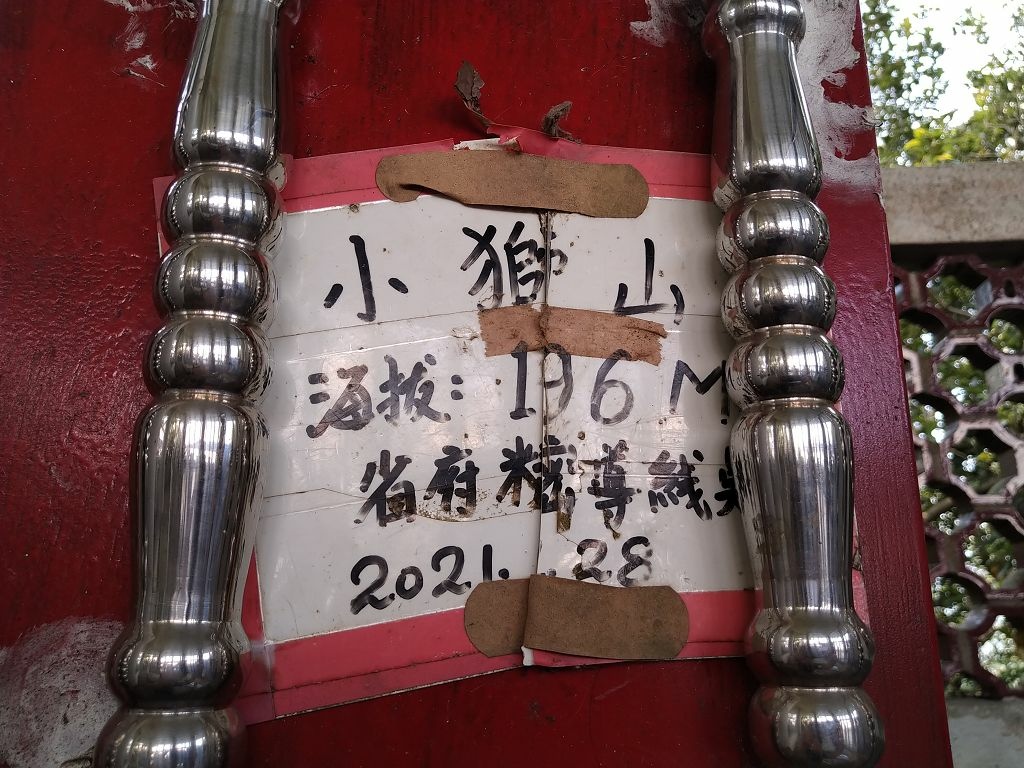 小獅山
海拔：196M
省府精尊縦
2021. .28